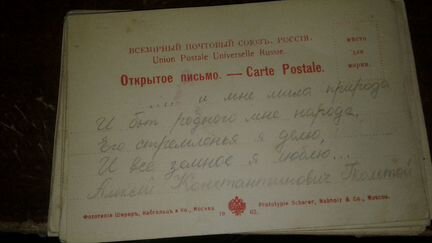 ВСЕМІРНЫЙ ПОЧТОВЫЙ СОЮЗЪ, РОССІЯ.
Union Postale Universelle Russie.
Открытое письмо. — Carte Postale.
мѣсто
для
марки.
..... и мне мила природа
И быт родного мне народа,
Его стремленья я делю,
И все земное я люблю...
Алексей Константинович Толстой
Фототипія Шереръ, Набгольцъ и Ко., Москва.
19 02.
Prototypie Scherer, Nabholz & Co., Moscou.